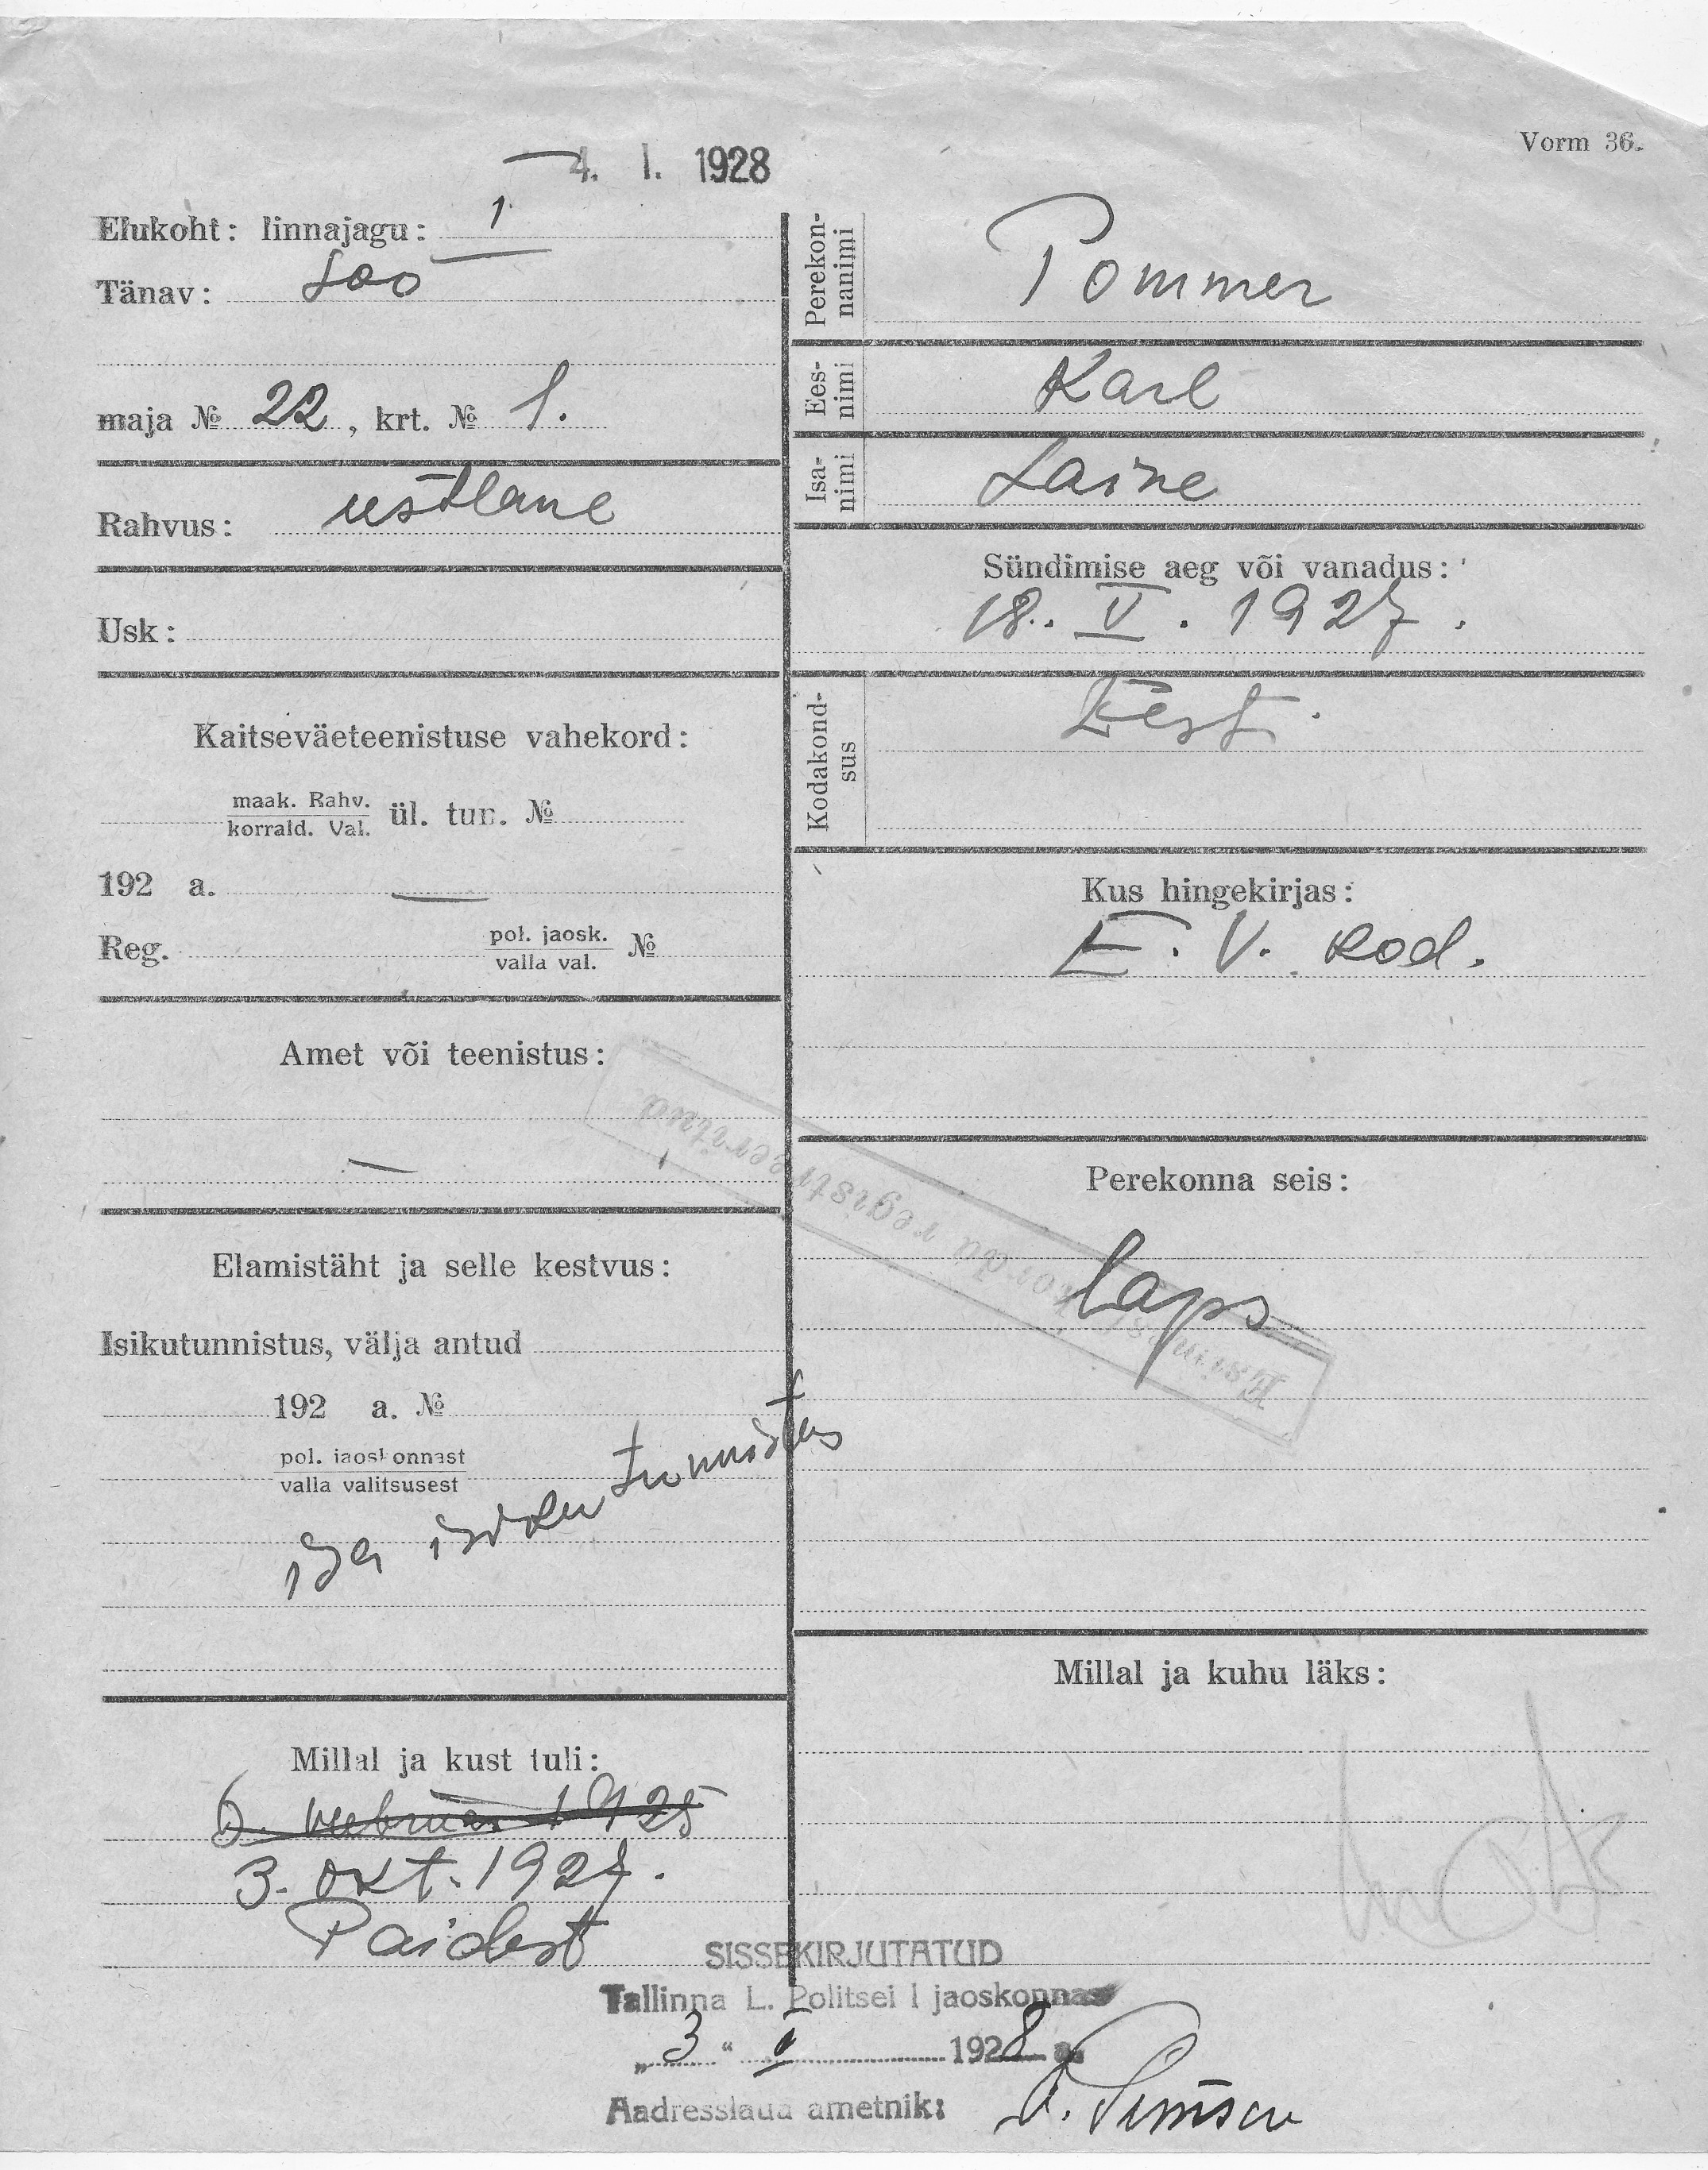 Vorm 36.
4. I. 1928
Elukoht: linnajagu: I
Tänav: Soo
maja № 22, krt. № 1.
Rahvus: eestlane
Usk:
Kaitseväeteenistuse vahekord:
maak. Rahv.
korrald. Val. ül. tun. №
192 a. —
Reg. pol. jaosk. №
valla val.
Amet või teenistus:
—
Elamistäht ja selle kestvus:
Isikutunnistus, välja antud
192 a. №
pol. jaoskonnast
valla valitsusest
isa isiku tunnistus
Millal ja kust tuli:
6. veebruar 1925
3. okt. 1927.
Paidest
Perekonnanimi Pommer
Eesnimi Karl
Isanimi Laine
Sündimise aeg või vanadus:
18. V. 1927.
Kodakondsus Eest.
Kus hingekirjas:
E. V. kod.
Perekonna seis:
laps
Esimest korda registreeritud
Millal ja kuhu läks:
SISSEKIRJUTATUD
Tallinna L. Politsei I jaoskonnas
„3" I 1928 a.
Aadresslaua ametnik: